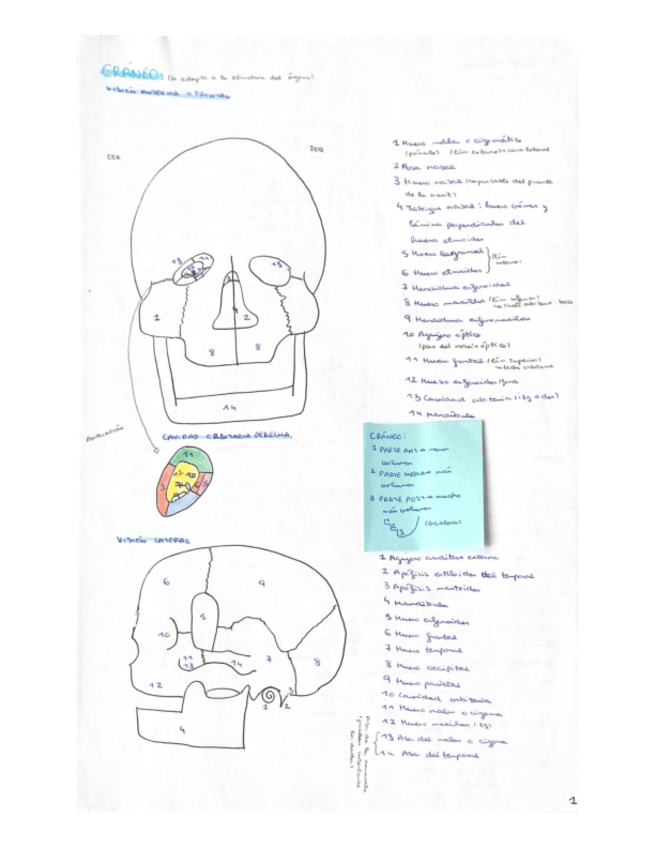 CRÁNEO: (se adapta a la estructura del órgano)
VISIÓN ANTERIOR O FRONTAL
DER
IZQ
1 Hueso malar o cigomático
(pómulo)
2 Fosa nasal
3 Hueso nasal (responsable del puente
de la nariz)
4 Tabique nasal: hueso vómer y
lámina perpendicular del
hueso etmoides
5 Hueso lagrimal
6 Hueso etmoides
7 Hendidura esfenoidal
8 Hueso maxilar
9 Hendidura esfenomaxilar
10 Agujero óptico
(paso del nervio óptico)
11 Hueso frontal (lím superior)
12 Hueso esfenoides
13 Cavidad orbitaria (izq o der)
14 Mandíbula
13
11
13
3
1
2
8
8
14
AMPLIACIÓN
CAVIDAD ORBITARIA DERECHA
11
12
10
CRÁNEO:
1 PARTE ANT → menos
volumen
2 PARTE MEDIA → más
volumen
3 PARTE POST → mucho
más volumen
(escalera)
VISIÓN LATERAL
6
9
5
10
11
13
14
7
8
12
3
1
2
4
1 Agujero auditivo externo
2 Apófisis estiloides del temporal
3 Apófisis mastoides
4 Mandíbula
5 Hueso esfenoides
6 Hueso frontal
7 Hueso temporal
8 Hueso occipital
9 Hueso parietal
10 Cavidad orbitaria
11 Hueso malar o cigoma
12 Hueso maxilar (izq)
13 Asa del malar o cigoma
14 Asa del temporal
1